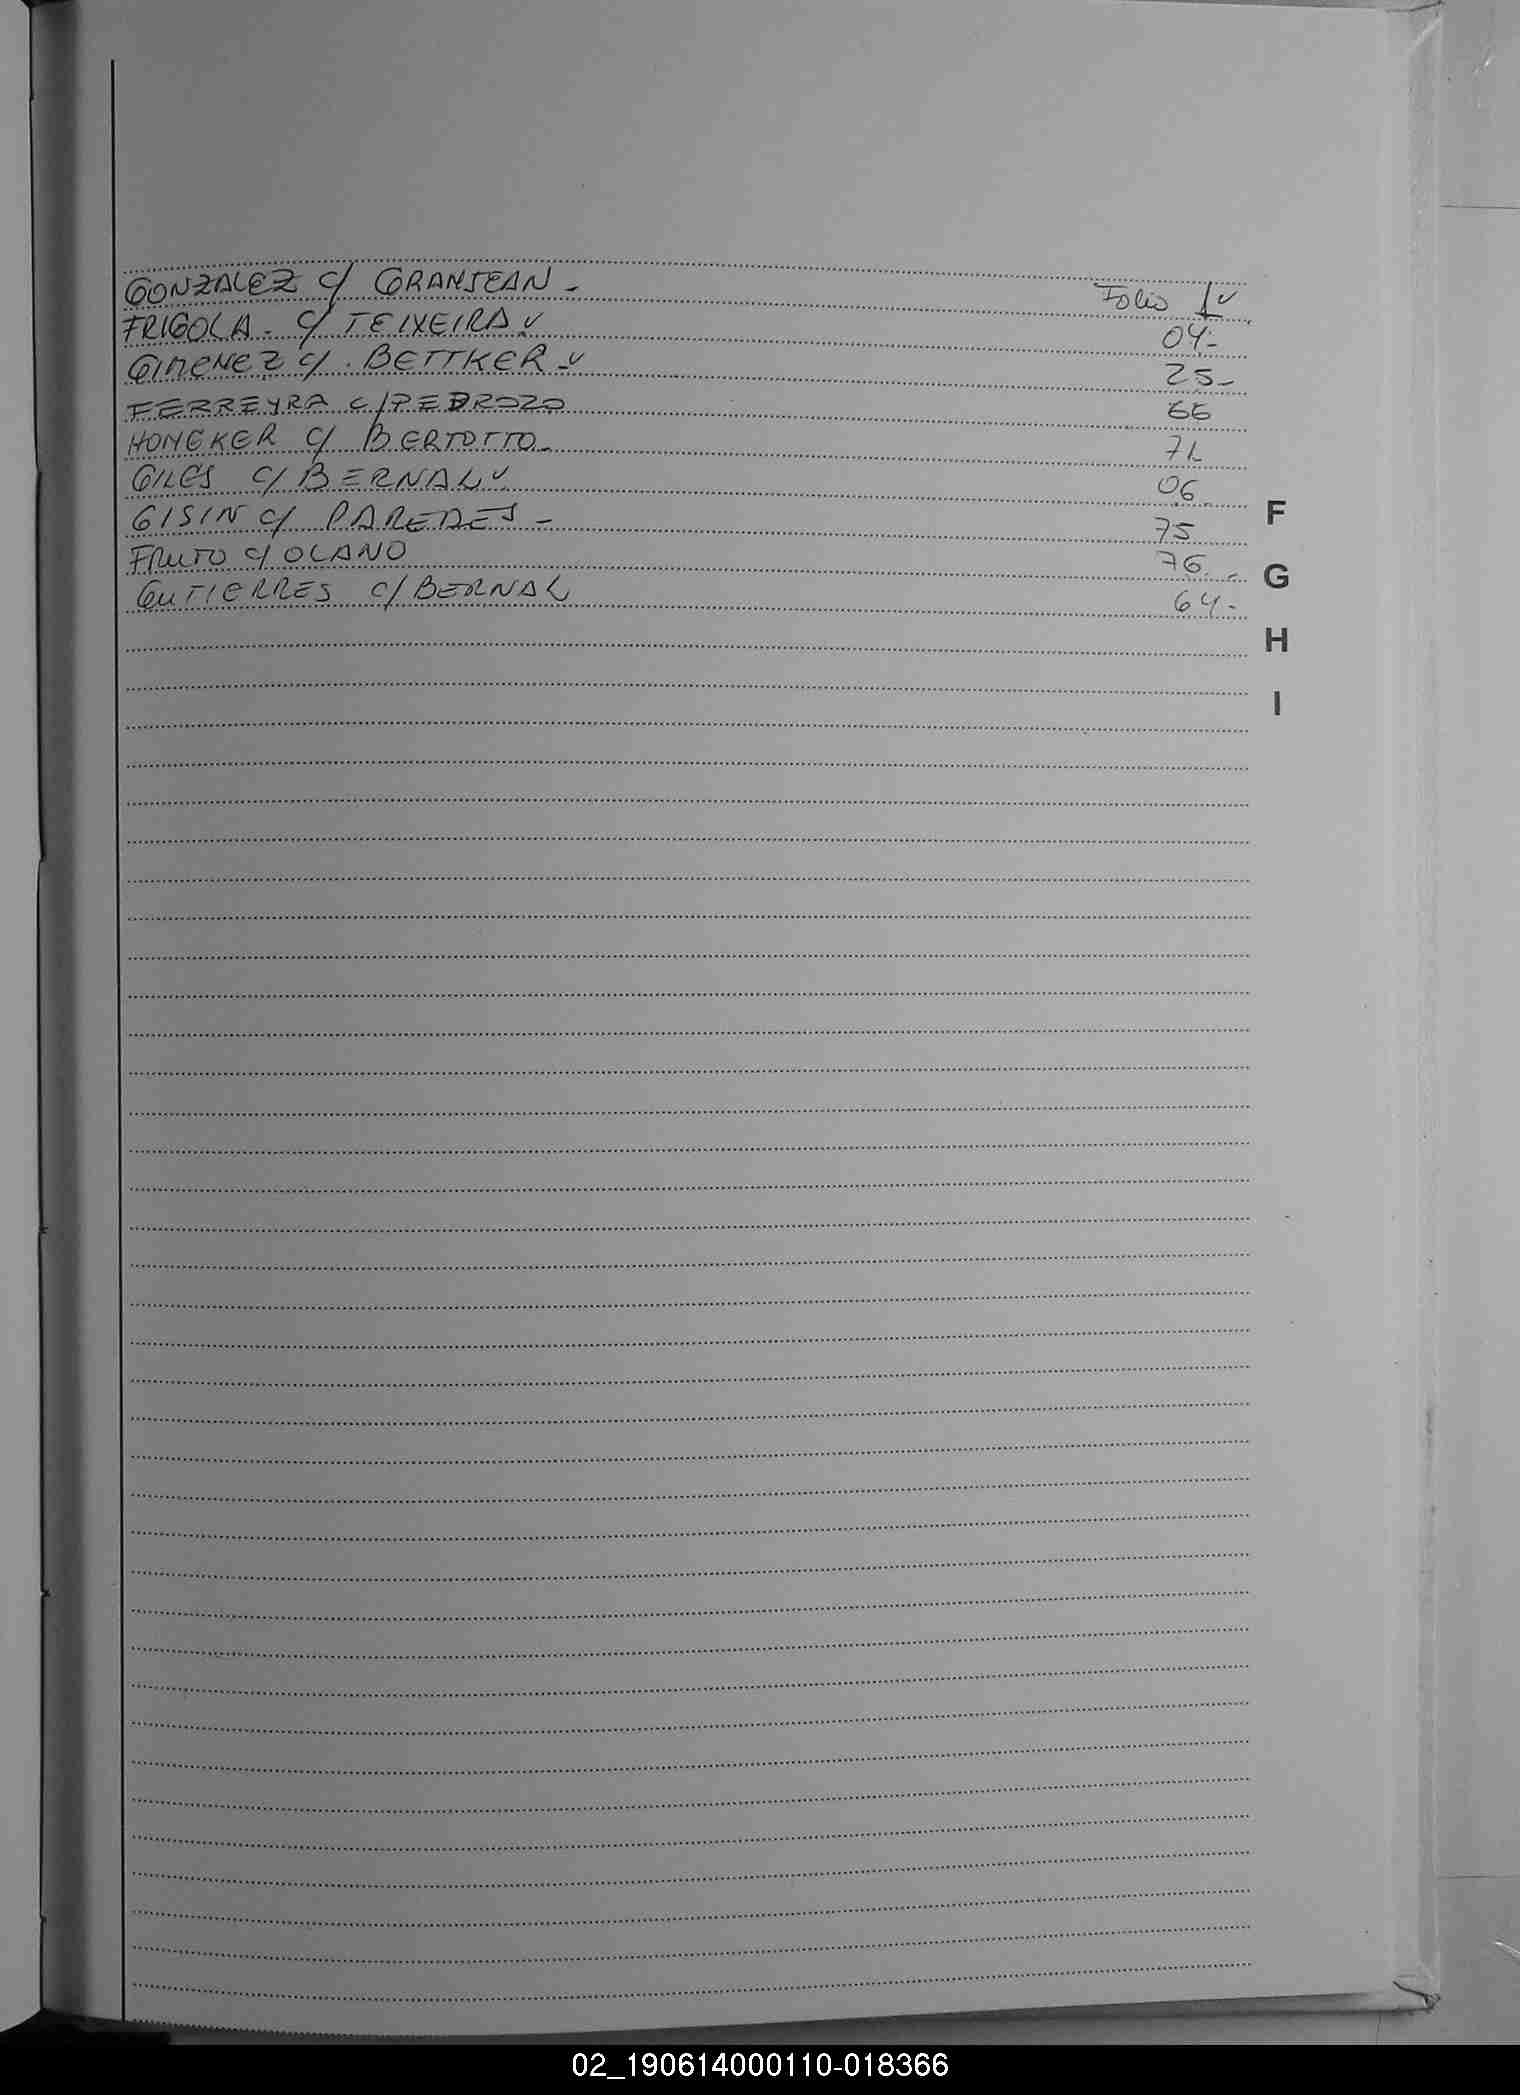 GONZALEZ c/ GRANJEAN - Folio 1 ✓
FRIGOLA - c/ TEIXEIRA ✓ 04.-
GIMENEZ c/. BETTKER - ✓ 25-
FERREYRA c/PEDROZO 66
HONEKER c/ BERTOTTO - 71
GILES c/ BERNAL ✓ 06
GISIN c/ PAREDES - 75
FRUTO c/ OLANO 76 -
GUTIERRES c/ BERNAL 64-
F
G
H
I
02_190614000110-018366